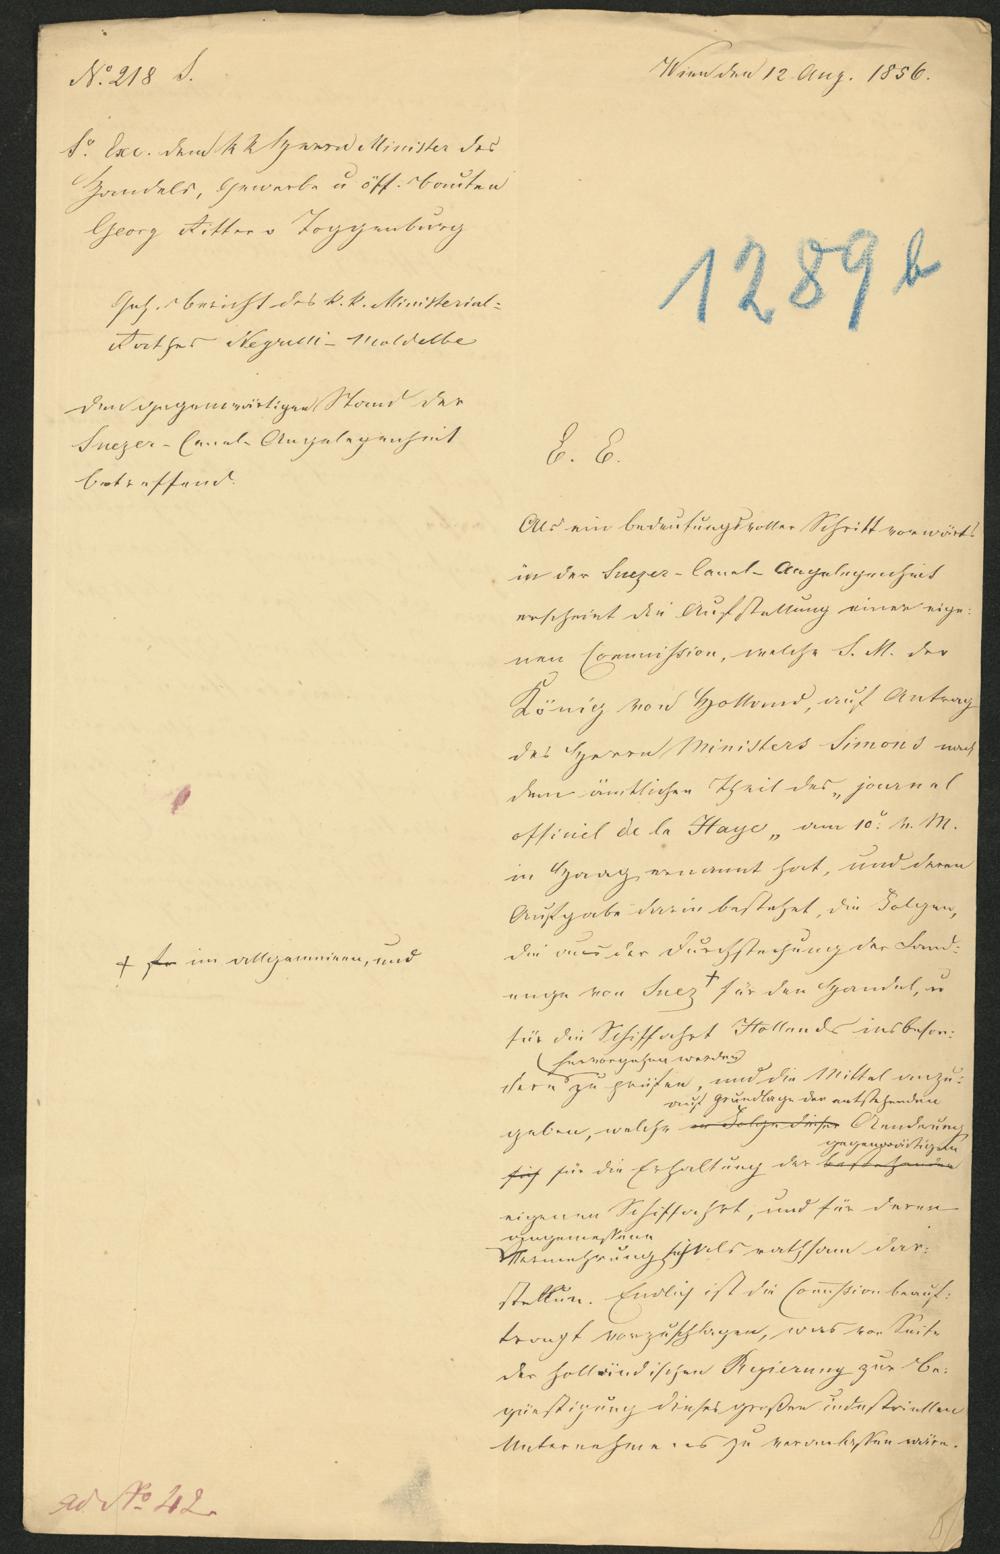 No. 218 S.
Wien den 12 Aug. 1856.
Sr. Exc. dem k k Herrn Minister des
Handels, Gewerbe u öff. Bauten
Georg Ritter v Toggenburg
1289 b
Geh. Bericht des k. k. Ministerial-
Rathes Negrelli-Moldelbe
den gegenwärtigen Stand der
Suezer-Canal-Angelegenheit
betreffend.
E. E.
Als ein bedeutungsvoller Schritt vorwärts
in der Suezer-Canal-Angelegenheit
erscheint die Aufstellung einer eige-
nen Commission, welche S. M. der
König von Holland, auf Antrag
des Herrn Ministers Simons nach
dem ämtlichen Theil des „journal
officiel de la Haye„ am 10. v. M.
in Haag ernannt hat, und deren
Aufgabe darin bestehet, die Folgen,
die aus der Durchstechung der Land-
enge von Suez + für den Handel, u
+ im allgemeinen, und
für die Schiffahrt Hollands insbeson-
hervorgehen werden
dere zu prüfen, und die Mittel anzu-
auf Grundlage der entstehenden
geben, welche in Folge dieser Aenderung
gegenwärtigen
sich für die Erhaltung der bestehenden
eigenen Schiffahrt, und für deren
angemessene
Vermehrung sich als rathsam dar-
stellen. Endlich ist die Com̅ission beauf-
tragt vorzuschlagen, was von Seite
der holländischen Regierung zur Be-
günstigung dieses großen industriellen
Unternehmens zu veranlassen wäre.
ad No 42